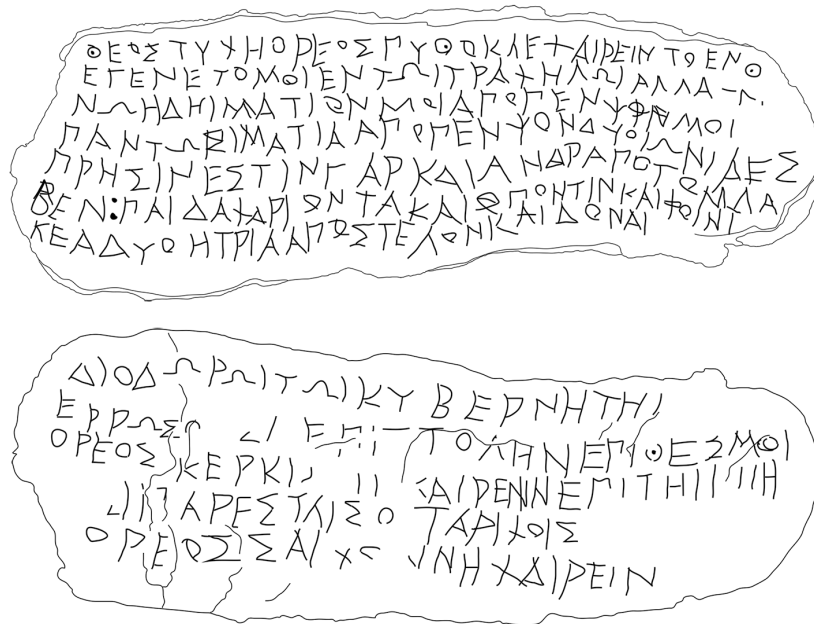 ΘΕΟΣΤΥΧΗΟΡΕΟΣΠΥΘΟΚΛΕΧΑΙΡΕΙΝΤΟΕΝΘ
ΕΓΕΝΕΤΟΜΟΙΕΝΤΩΙΤΡΑΧΗΛΩΙΑΛΛΑ
ΝΩΗΔΗΙΜΑΤΙΟΝΜΟΙΑΠΟΠΕΝΥΦΑΜΟΙ
ΠΑΝΤΩΒΙΜΑΤΙΑΑΠΟΠΕΝΥΟΝΔΥΟΙΩΝΙΔΕΣ
ΠΡΗΣΙΝΕΣΤΙΝΓΑΡΚΑΙΑΝΔΡΑΠΟΤ
ΒΕΝ:ΠΑΙΔΑΧΑΡΙΟΝΤΑΚΑΙΟΠΟΝΤΙΝΚΑΙΦΟΜΛΑ
ΚΕΑΔΥΟΗΤΡΙΑΑΠΟΣΤΕΛΟΝΚΑΙΔΟΝΑΙ
ΔΙΟΔΩΡΩΙΤΩΙΚΥΒΕΡΝΗΤΗΙ
ΕΡΡΩΣ ΕΠΙ ΤΟΛΗΝΕΠΙΘΕΣΜΟΙ
ΟΡΕΟΣ ΚΕΡΚΙ ΑΙΡΕΝΝΕΠΙΤΗΙ
ΠΑΡΕΣΤΛΙΣΟ ΤΑΡΙΧΟΙΣ
ΟΡΕΟΣΣΑΙ ΝΗΧΑΙΡΕΙΝ